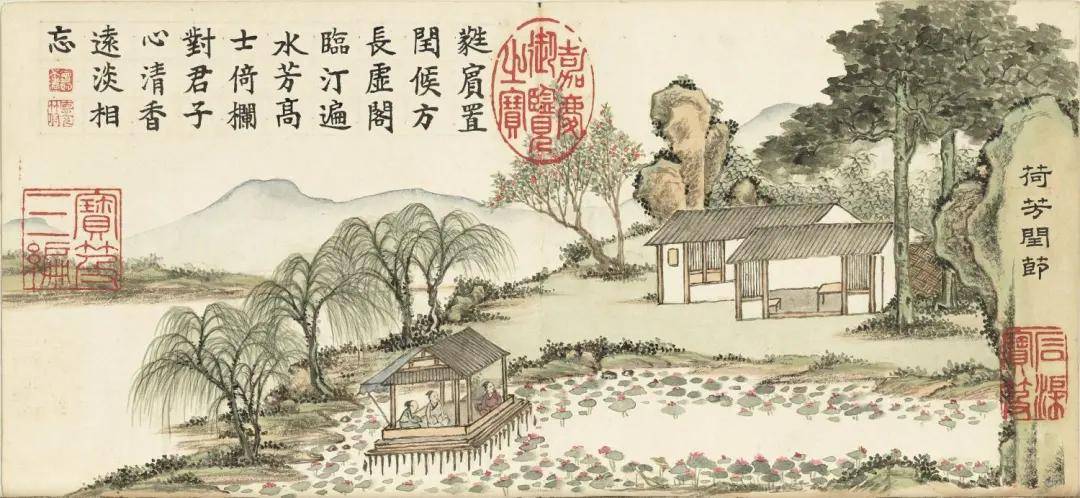 荷芳閏節
石渠
寶笈
嘉慶
御覽
之寶
蕤賓置
閏候方
長虛閣
臨汀遍
水芳高
士倚欄
對君子
心清香
遠淡相
忘
寶笈
三編